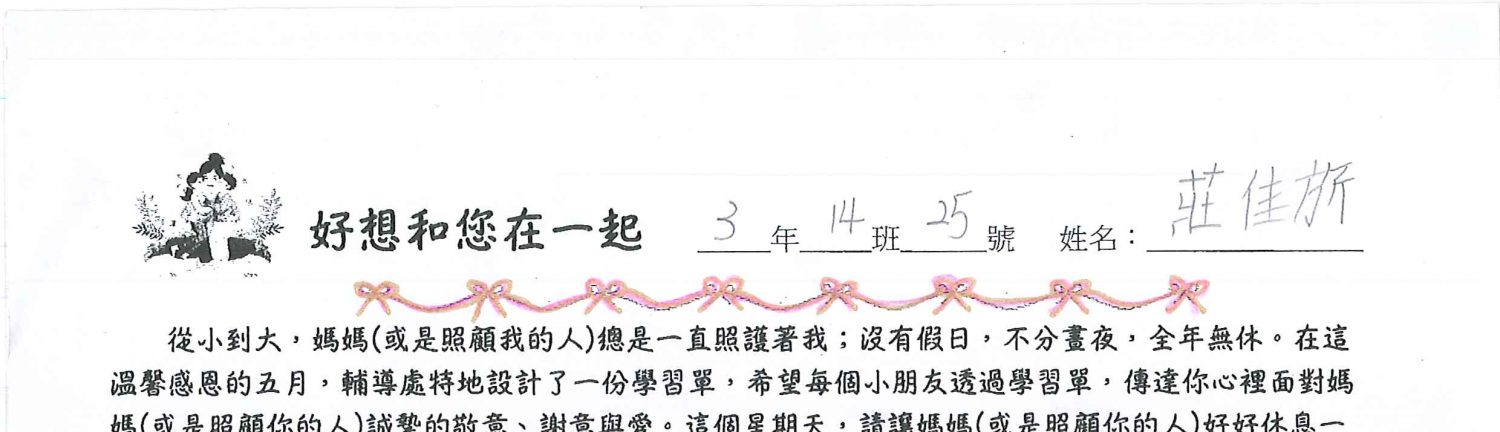 好想和您在一起 3年14班25號 姓名：莊佳旂
從小到大，媽媽(或是照顧我的人)總是一直照護著我；沒有假日，不分晝夜，全年無休。在這
溫馨感恩的五月，輔導處特地設計了一份學習單，希望每個小朋友透過學習單，傳達你心裡面對媽
媽(或是照顧你的人)誠摯的敬意、謝意與愛。這個星期天，請讓媽媽(或是照顧你的人)好好休息一